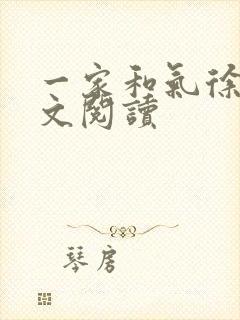 一家和氣徐
文閱讀
琴房